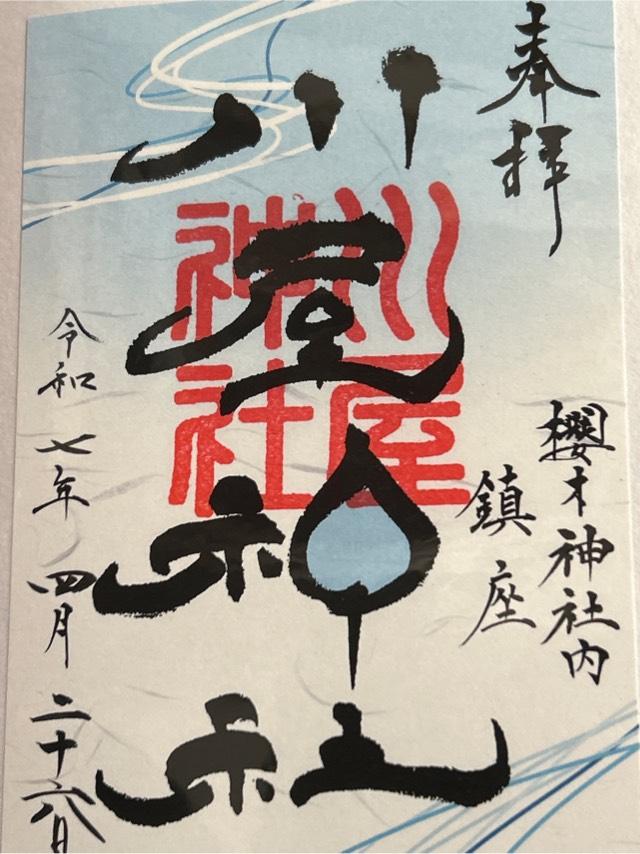 奉拝
櫻木神社内
鎮座
川屋神社
川屋
神社
令和七年四月二十六日